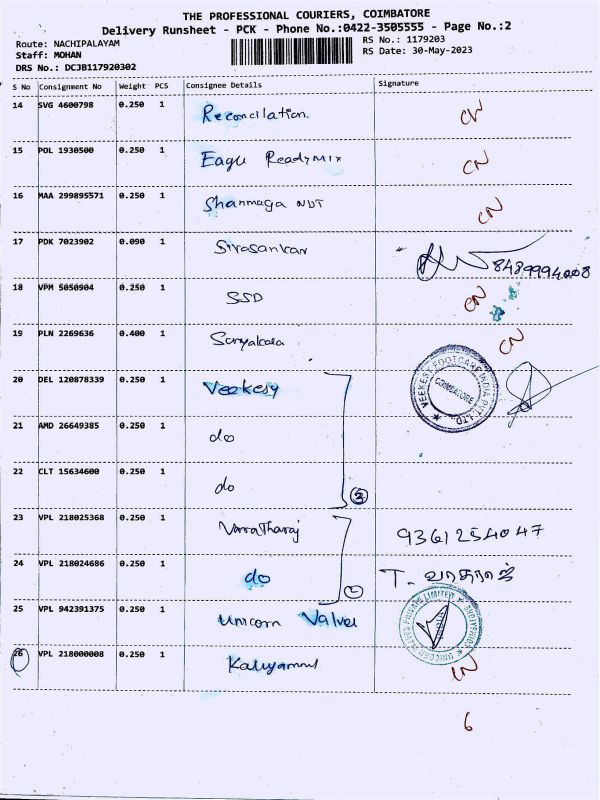 THE PROFESSIONAL COURIERS, COIMBATORE
Delivery Runsheet - PCK - Phone No.:0422-3505555 - Page No.:2
Route: NACHIPALAYAM RS No.: 1179203
Staff: MOHAN RS Date: 30-May-2023
DRS No.: DCJB117920302
S No Consignment No Weight PCS Consignee Details Signature
14 SVG 4600798 0.250 1 Reconcilation. CN
15 POL 1930500 0.250 1 Eagle Readymix CN
16 MAA 299895571 0.250 1 Shanmuga NDT CN
17 PDK 7023902 0.090 1 Sivasankar 8489994008
18 VPM 5050904 0.250 1 SSD CN
19 PLN 2269636 0.400 1 Suryakala CN
20 DEL 120878339 0.250 1 Veekesy
VEEKESY FOOTCARE INDIA PVT. LTD. COIMBATORE
21 AMD 26649385 0.250 1 do
22 CLT 15634600 0.250 1 do 3
23 VPL 218025368 0.250 1 Varatharaj 9361254047
24 VPL 218024686 0.250 1 do 2 T. வரதராஜ்
25 VPL 942391375 0.250 1 Unicorn Valves
26 VPL 218000008 0.250 1 Kaliyammal CN
6